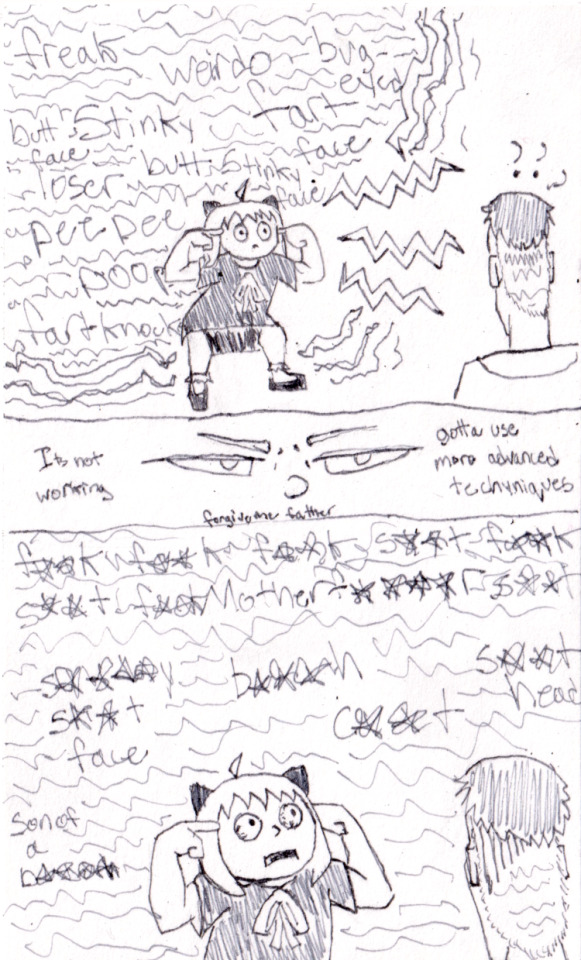 freak weirdo bug
eyed
butt face Stinky fart face
loser butt Stinky face
pee pee
poo
fartknock
? ?
It's not
working
gotta use
more advanced
techyniques
forgive me father
f**k f**k f**k s**t f**k
s**t Mother s**t
s**t
face
b****h
s**t
head
c**t
son of
a